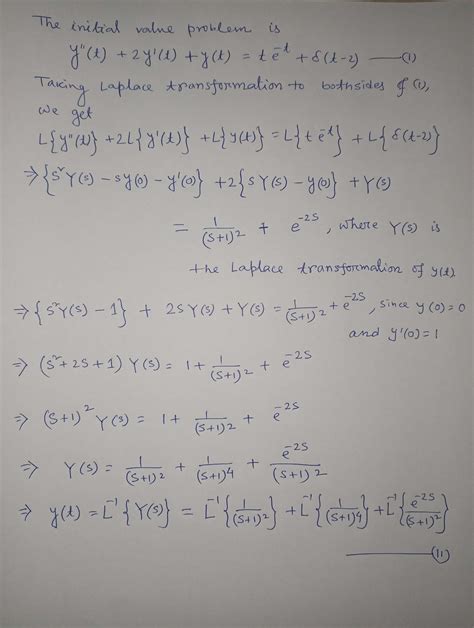 The initial value problem is
y"(t) + 2y'(t) + y(t) = t e^-t + δ(t-2) —(1)
Taking Laplace transformation to bothsides of (1),
we get
L{y"(t)} + 2L{y'(t)} + L{y(t)} = L{t e^-t} + L{δ(t-2)}
⇒ {s²Y(s) - sy(0) - y'(0)} + 2{sY(s) - y(0)} + Y(s)
= 1/(s+1)² + e^-2s, where Y(s) is
the Laplace transformation of y(t).
⇒ {s²Y(s) - 1} + 2sY(s) + Y(s) = 1/(s+1)² + e^-2s, since y(0)=0
and y'(0)=1
⇒ (s²+2s+1) Y(s) = 1 + 1/(s+1)² + e^-2s
⇒ (s+1)² Y(s) = 1 + 1/(s+1)² + e^-2s
⇒ Y(s) = 1/(s+1)² + 1/(s+1)⁴ + e^-2s/(s+1)²
⇒ y(t) = L⁻¹{Y(s)} = L⁻¹{1/(s+1)²} + L⁻¹{1/(s+1)⁴} + L⁻¹{e^-2s/(s+1)²}
—(11)